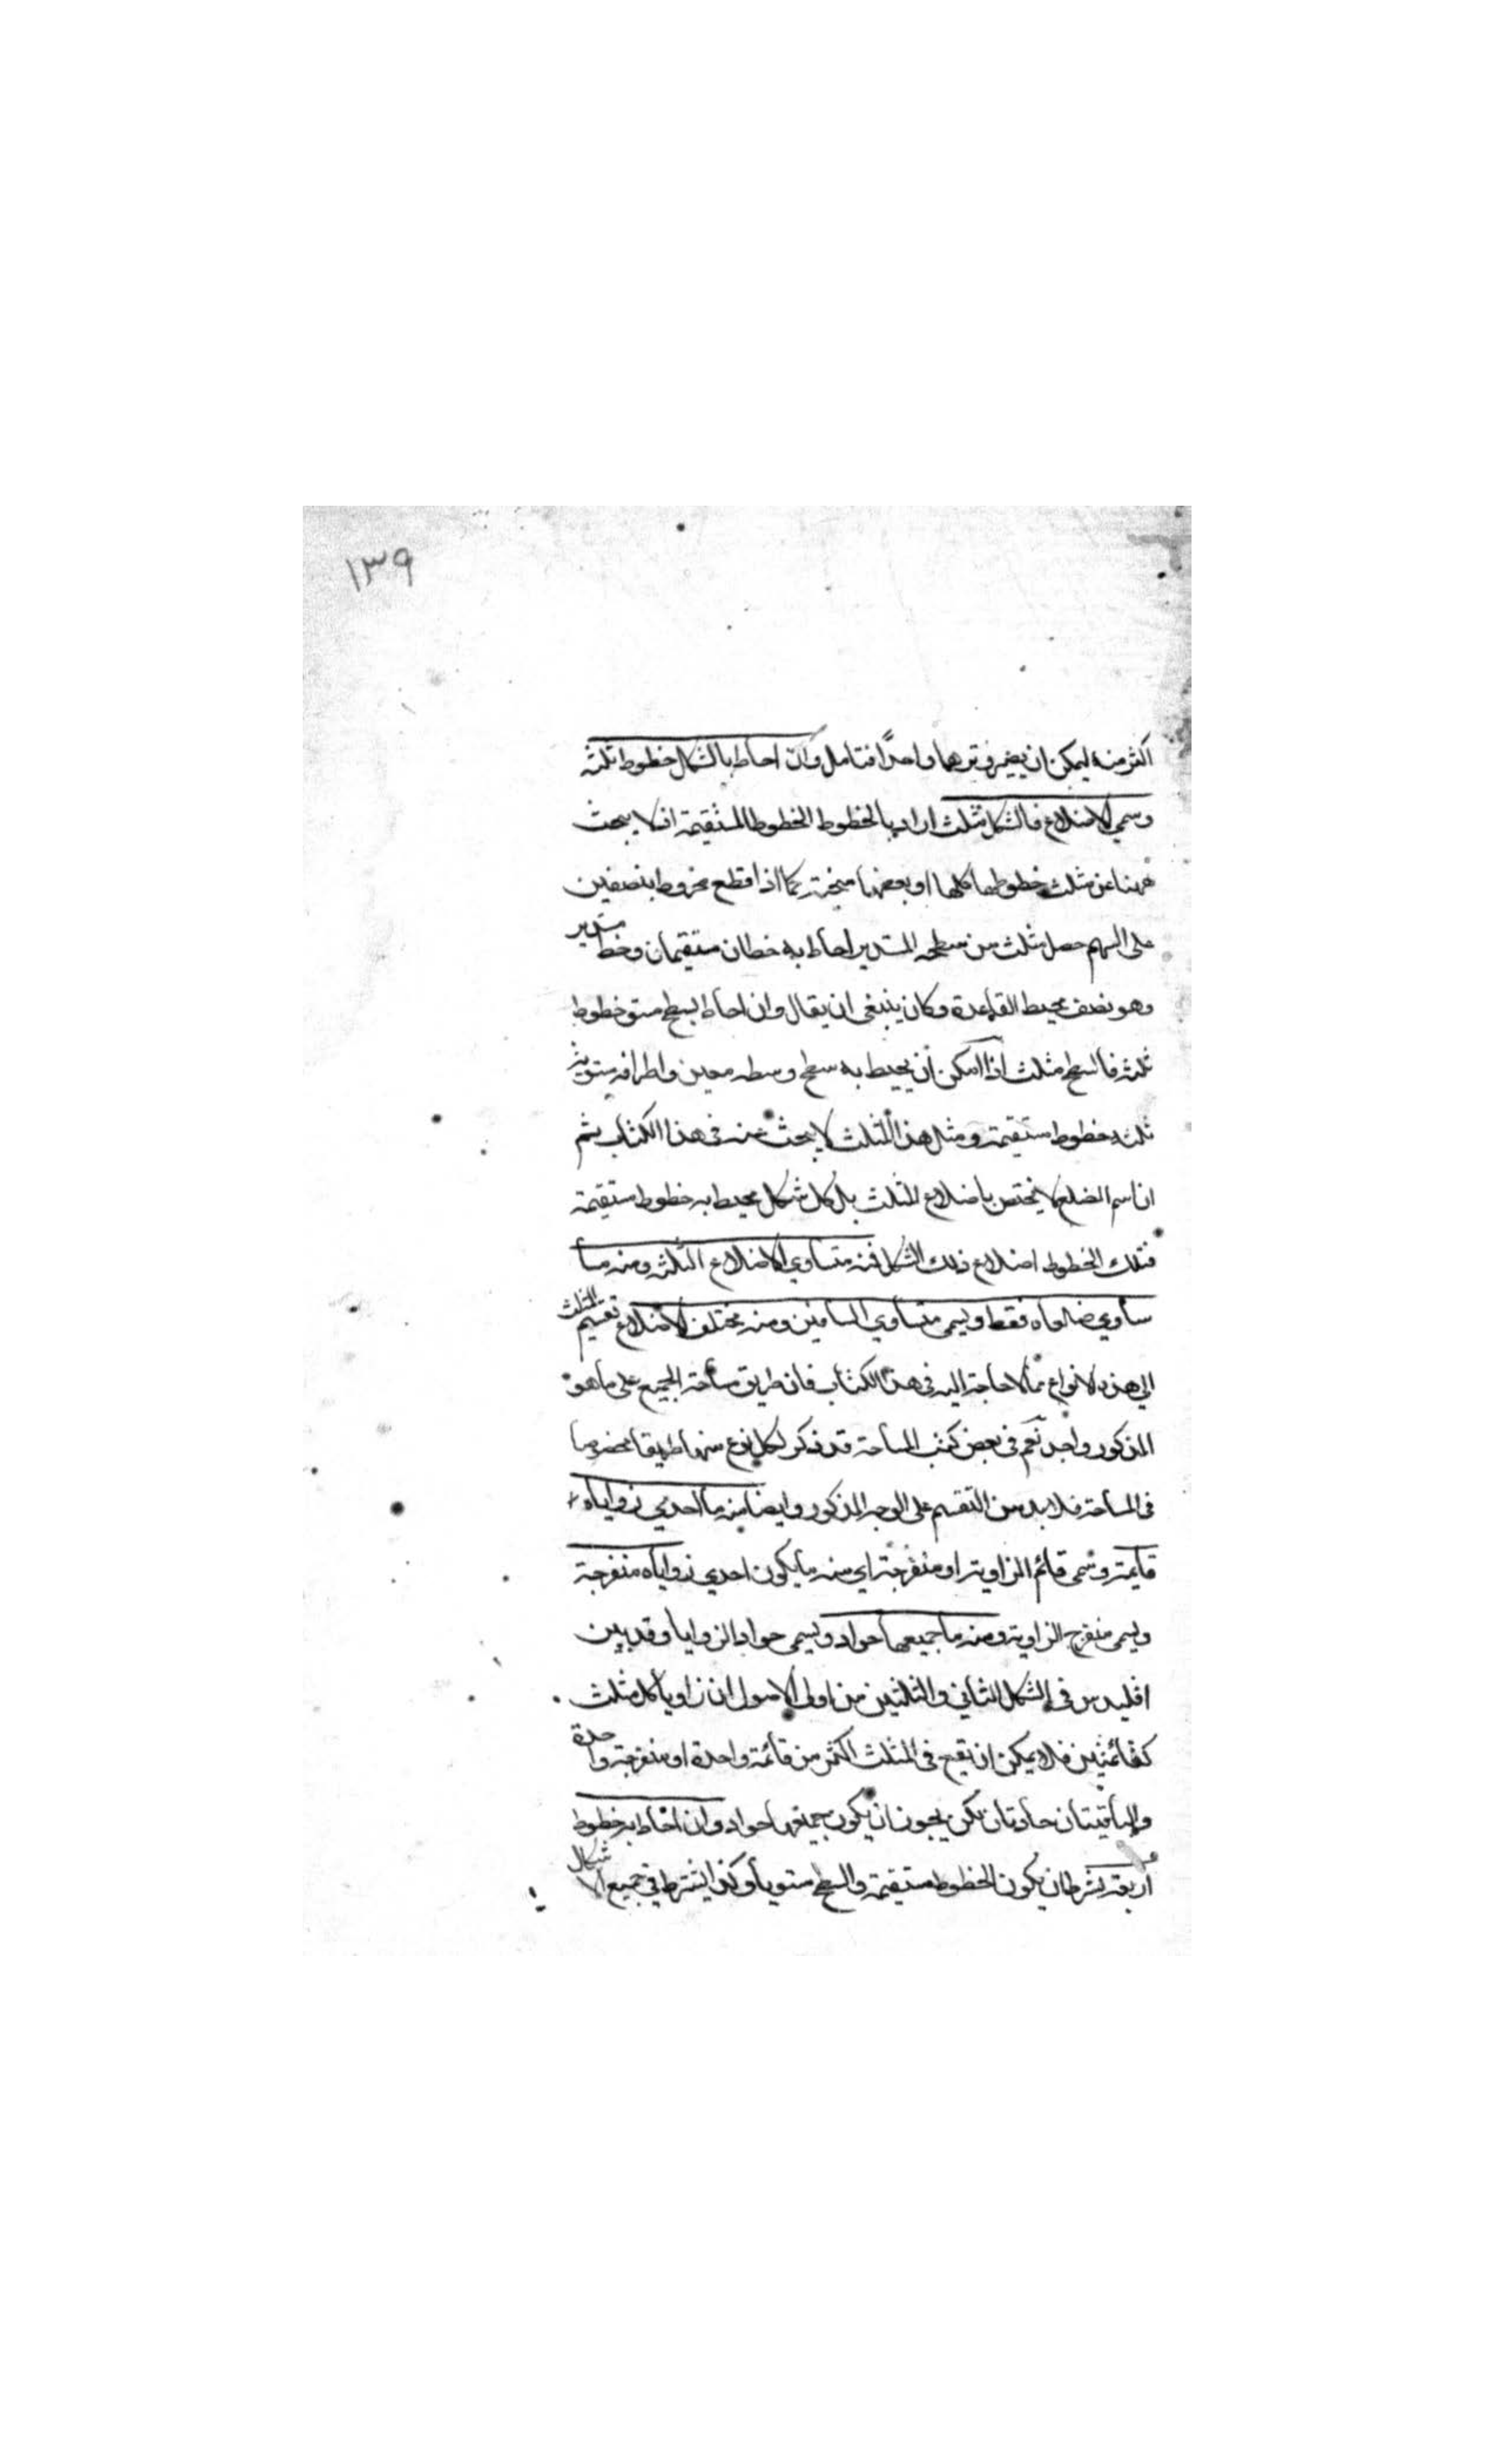 ١٣٩
اكثر منه ليمكن ان يصير وترهما واحدًا فتامل وان احاط بالشكل خطوط ثلثة
وسمي الاضلاع فالشكل مثلث اراد بالخطوط الخطوط المستقيمة اذ لا يبحث
ههنا عن مثلث خطوطها كلها او بعضها منحنية كما اذا قطع مخروط بنصفين
على السهم حصل مثلث من سطحه المستدير احاط به خطان مستقيمان وخط مستدير
وهو نصف محيط القاعدة وكان ينبغي ان يقال وان احاط بسطح مستو خطوط
ثلثة فالسطح مثلث اذا امكن ان يحيط به سطح وسطه واطرافه مستوية
ثلثة خطوط مستقيمة ومثل هذا المثلث لا يبحث عنه في هذا الكتاب ثم
ان اسم الضلع لا يختص باضلاع المثلث بل كل شكل يحيط به خطوط مستقيمة
فتلك الخطوط اضلاع ذلك الشكل فمنه متساوي الاضلاع الثلثة ومنه ما
ساوي ضلعاه فقط ويسمى متساوي الساقين ومنه مختلف الاضلاع تقسيم المثلث
الى هذه الانواع مما لا حاجة اليه في هذا الكتاب فان طريق مساحة الجميع على ما هو
المذكور واحد نعم في بعض كتب المساحة قد ذكر لكل نوع منها طريقا مخصوصا
في المساحة فلا بد من التقسيم على الوجه المذكور وايضا منه ما احدي زواياه
قايمة وسمى قائم الزاوية او منفرجة اي منه ما يكون احدي زواياه منفرجة
ويسمى منفرج الزاوية ومنه ما جميعها حواد ويسمى حواد الزوايا وقد بين
اقليدس في الشكل الثاني والثلثين من اولى الاصول ان زوايا كل مثلث
كقائمتين فلا يمكن ان تقع في المثلث اكثر من قائمة واحدة او منفرجة واحدة
والباقيتان حادتان لكن يجوز ان يكون جميعها حواد وان احاط به خطوط
اربعة بشرط ان يكون الخطوط مستقيمة والسطح مستويا وكذا يشترط في جميع الاشكال